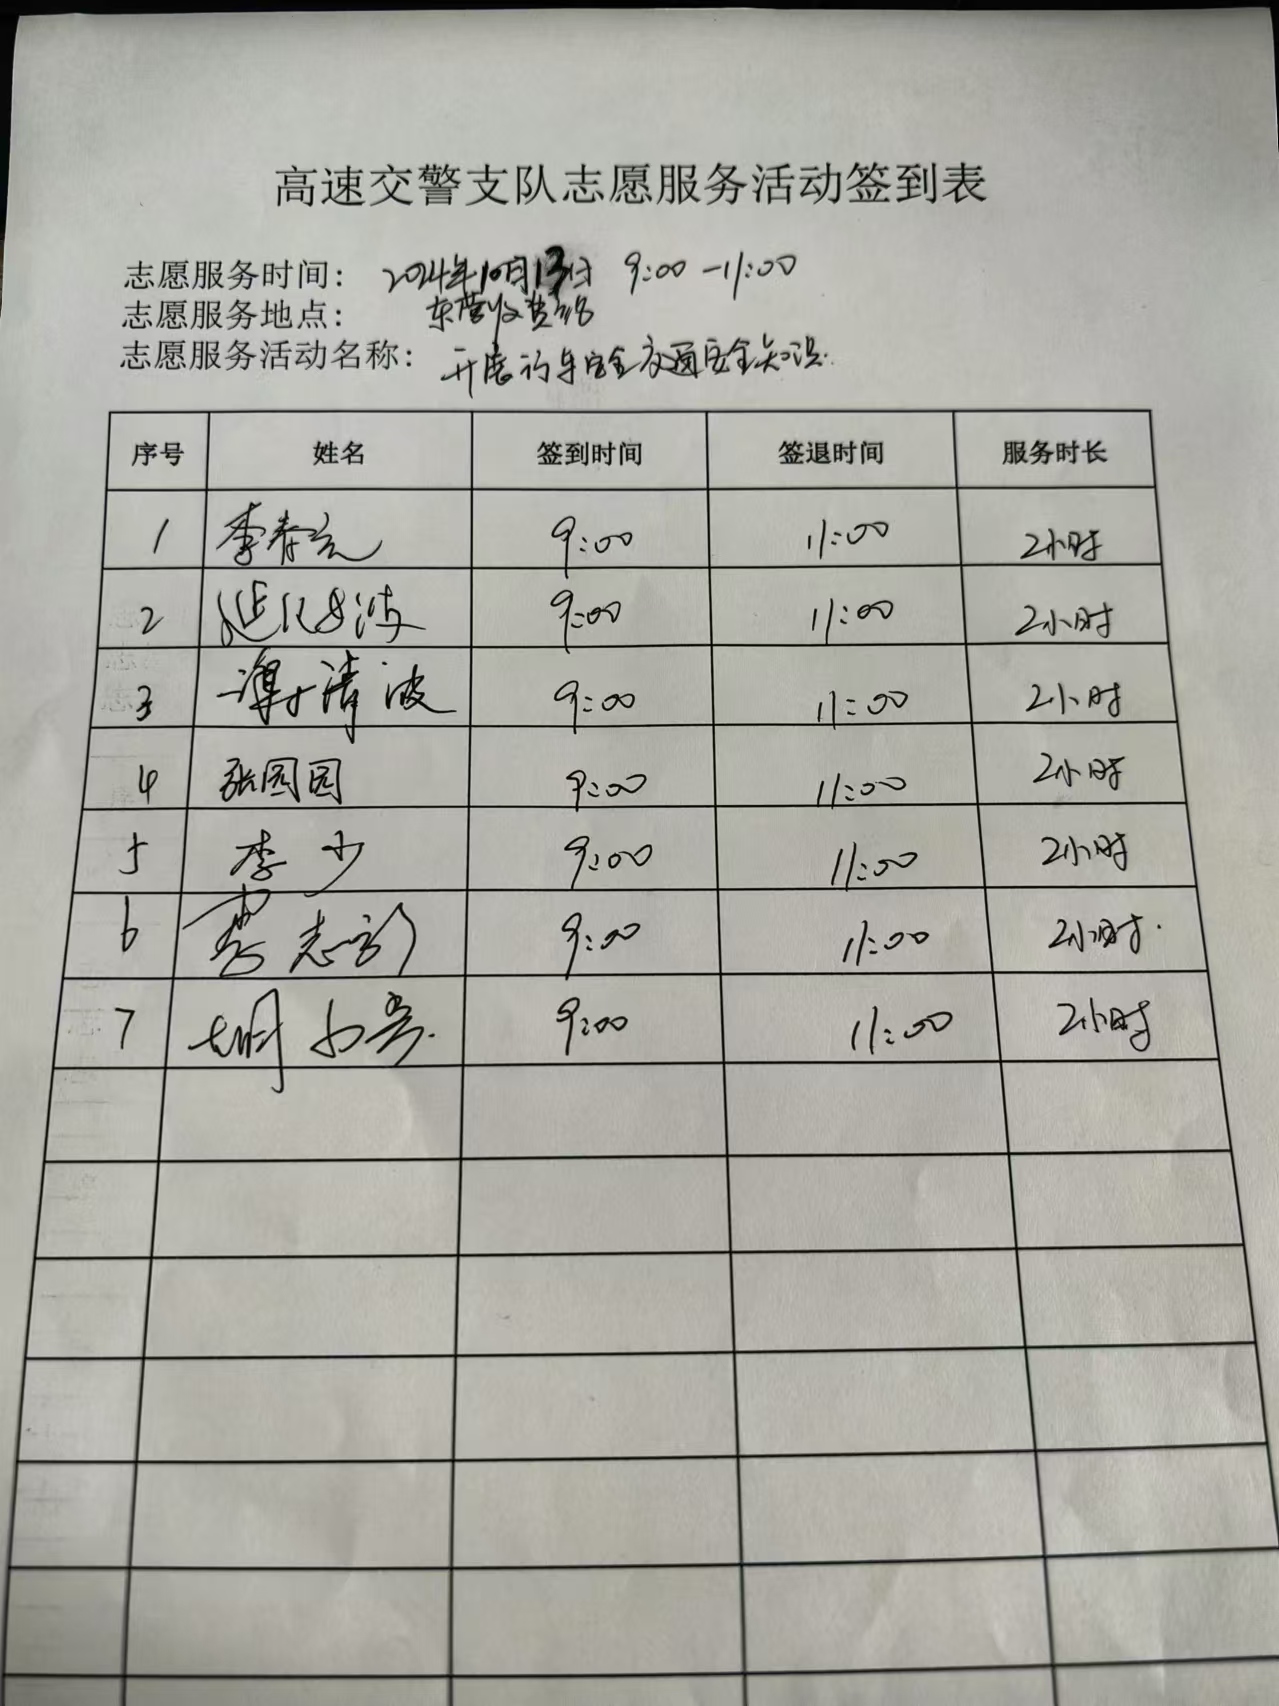 高速交警支队志愿服务活动签到表
志愿服务时间： 2024年10月13日 9:00-11:00
志愿服务地点： 东营收费站
志愿服务活动名称： 开展行车安全交通安全知识.
序号 姓名 签到时间 签退时间 服务时长
1 李春 9:00 11:00 2小时
2 延 波 9:00 11:00 2小时
3 谭清波 9:00 11:00 2小时
4 张园园 9:00 11:00 2小时
5 李少 9:00 11:00 2小时
6 志 9:00 11:00 2小时.
7 胡 9:00 11:00 2小时